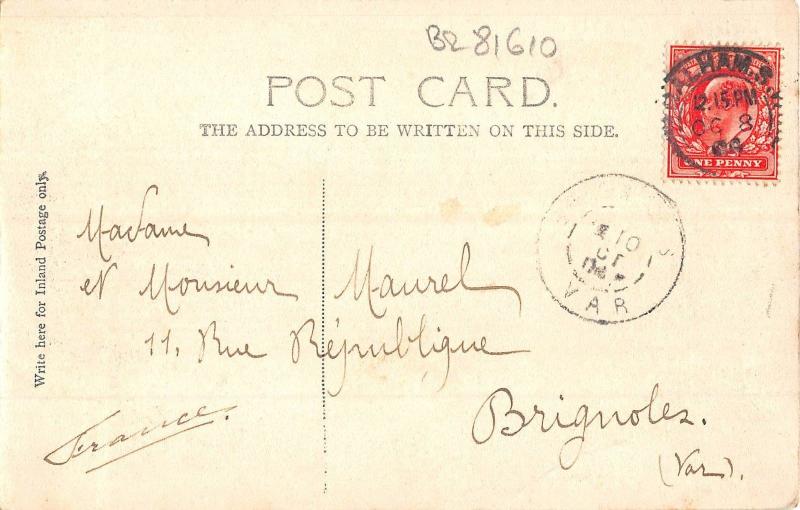 BR 81610
POST CARD.
THE ADDRESS TO BE WRITTEN ON THIS SIDE.
BALHAM.S.W
12.15 PM
OC 8
09
ONE PENNY
Write here for Inland Postage only.
10
VAR
Madame
et Monsieur Maurel
11, Rue République
Brignoles.
(Var).
France.